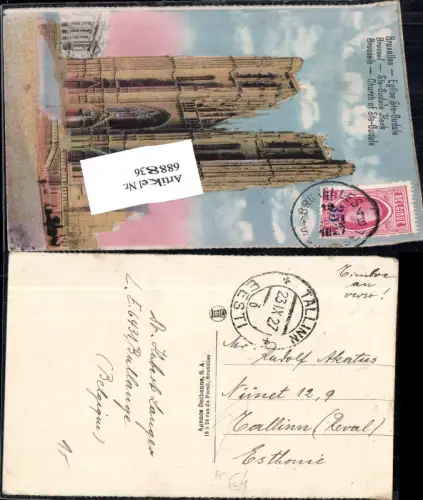 Bruxelles — Eglise Ste-Gudule
Brussel — Ste-Gudula Kerk
Brussels — Church of Ste-Gudule
Artikel Nr.
688836
BELGIQUE
1927
TALLINN
23 IX 27
EESTI
Timbre
au
verso!
Mr. Rudolf Akatus
12,9
Tallinn (Reval)
Esthonie
Agence Dechenne, S. A.
18 à 24 rue du Persil, Bruxelles
Hubert Langer
Bullange
(Belgique)